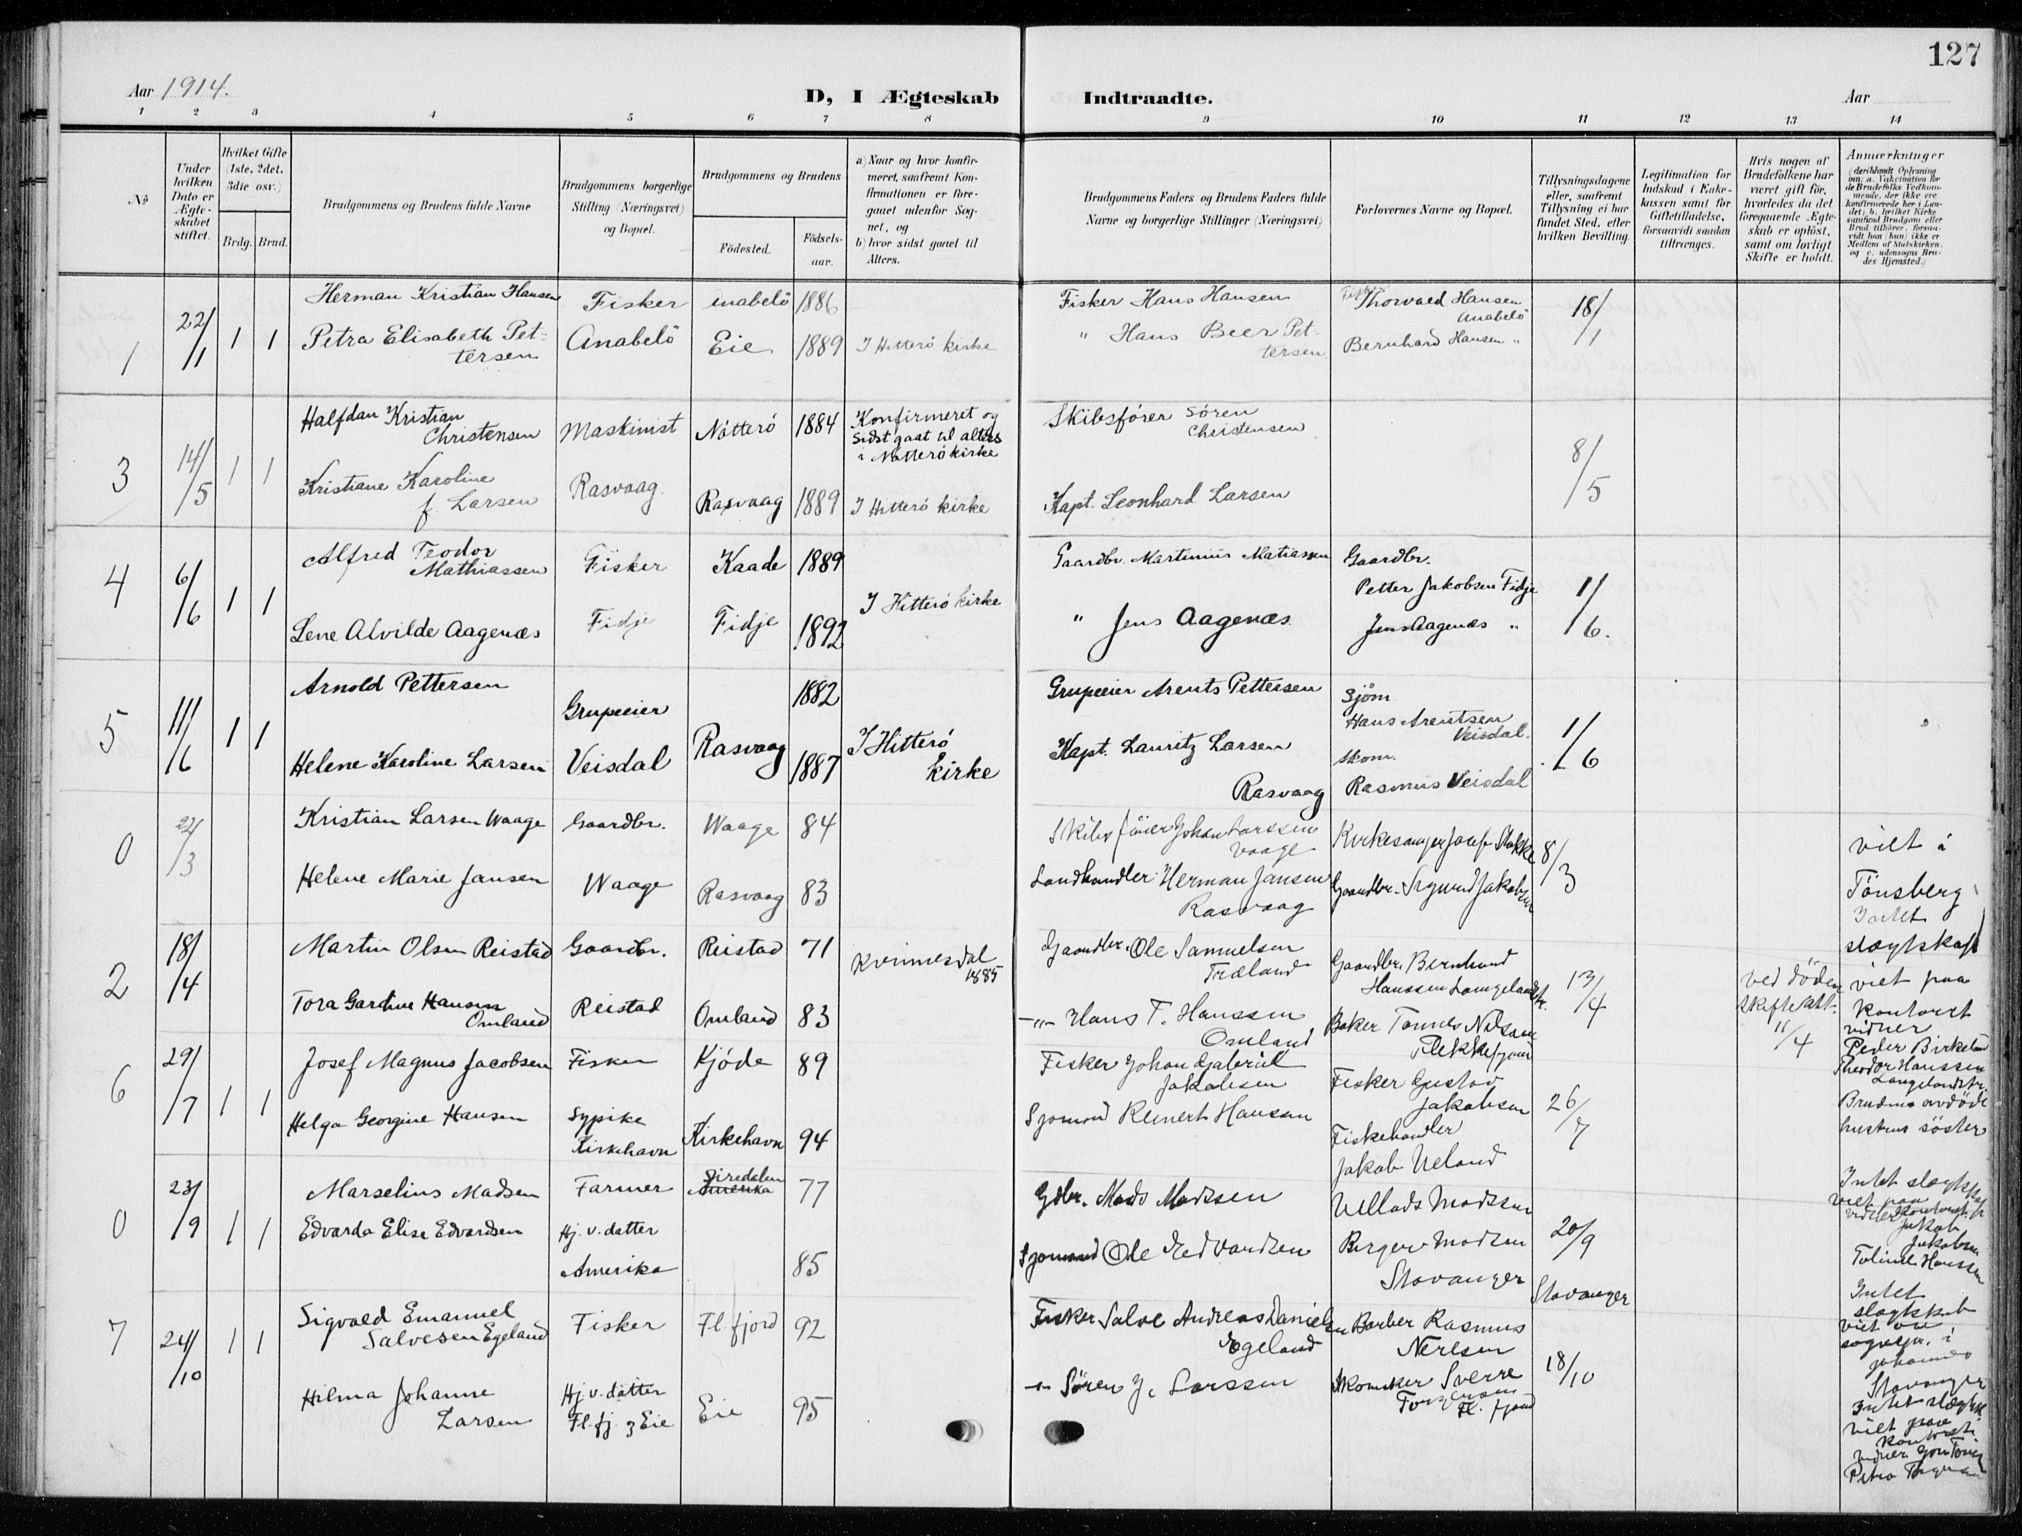 127
Aar 1914.
D, I Ægteskab Indtraadte.
Aar
1 2 3 4 5 6 7 8 9 10 11 12 13 14
No
Under hvilken Dato er Ægteskabet stiftet.
Hvilket Gifte (1ste, 2det, 3die osv.)
Brdg. Brud.
Brudgommens og Brudens fulde Navne
Brudgommens borgerlige Stilling (Næringsvei) og Bopæl.
Brudgommens og Brudens
Födested.
Födselsaar.
a) Naar og hvor konfirmeret, saafremt Konfirmationen er foregaaet udenfor Sognet, og
b) hvor sidst gaaet til Alters.
Brudgommens Faders og Brudens Faders fulde Navne og borgerlige Stillinger (Næringsvei)
Forlovernes Navne og Bopæl.
Tillysningsdagene eller, saafremt Tillysning ei har fundet Sted, efter hvilken Bevilling.
Legitimation for Indskud i Enkekassen samt for Giftetilladelse, forsaavidt saadan tiltrænges.
Hvis nogen af Brudefolkene har været gift för, hvorledes da det foregaaende Ægteskab er oplöst, samt om lovligt Skifte er holdt.
Anmærkninger
(deriblandt Oplysning om: a. Vakcination for de Brudefolks Vedkommende, der ikke ere konfirmerede her i Landet; b. hvilket Kirkesamfund Brudgom eller Brud tilhörer, forsaavidt han (hun) ikke er Medlem af Statskirken, og c. udensogns Brudes Hjemsted.)
1 22/1 1 1
Herman Kristian Hansen Fisker Anabelö 1886
Fisker Hans Hansen
Fisker Thorvald Hansen Anabelö 18/1
Petra Elisabeth Pettersen Anabelö Eie 1889 I Hitterö kirke
" Hans Beer Pettersen
Bernhard Hansen "
3 14/5 1 1
Halfdan Kristian Christensen Maskinist Nötterö 1884
Konfirmeret og sidst gaat til alters i Nötterö kirke
Skibsförer Sören Christensen
8/5
Kristiane Karoline f. Larsen Rasvaag Rasvaag 1889 I Hitterö kirke
Kapt. Leonhard Larsen
4 6/6 1 1
Alfred Teodor Mathiassen Fisker Kaade 1889
Gaardbr. Martinius Matiassen
Gaardbr. Petter Jakobsen Fidje 1/6.
Lene Alvilde Aagenæs Fidje Fidje 1892 I Hitterö kirke
" Jens Aagenæs
Jens Aagenæs "
5 11/6 1 1
Arnold Pettersen Grupeeier 1882
Grupeeier Arents Pettersen
Sjöm. Hans Arentsen Veisdal. 1/6
Helene Karoline Larsen Veisdal Rasvaag 1887 I Hitterö kirke
Kapt. Lauritz Larsen Rasvaag
Skom. Rasmus Veisdal
0 22/3
Kristian Larsen Waage Gaardbr. Waage 84
Skibsförer Johan Larssen Vaage
Kirkesanger Josef Stakke 8/3
viet i Tönsberg
Helene Marie Jansen Waage Rasvaag 83
Landhandler Herman Jansen Rasvaag
Gaardbr. Sigurd Jakobsen
Intet slægtskap
2 18/4
Martin Olsen Reistad Gaardbr. Reistad 71 Kvinnesdal 1885
Gaardbr. Ole Samuelsen Træland
Gaardbr. Bernhard Hanssen Langelandstr. 13/4
ved döden skifteatt. 11/4
viet paa kontoret vidner
Peder Birkeland
Theodor Hanssen Langelandstr.
Brudens avdöde hustrus söster
Tora Gardine Hansen Omland Reistad Omland 83
-"- Hans T. Hanssen Omland
Baker Tönnes Nilsson Flekkefjord
6 29/7 1 1
Josef Magnus Jacobsen Fisker Kjöde 89
Fisker Johan Gabriel Jakobsen
Fisker Gustav Jakobsen 26/7
Helga Georgine Hansen Sypike Kirkehavn Kirkehavn 94
Sjömand Reinert Hansen
Fiskehandler Jakob Ueland
0 23/9 1 1
Marselius Madsen Farmer Siredalen Amerika 77
Gdbr. Mads Madssen
Vellads Madssen
Intet slægtskap
viet paa kontoret
vidner Jakob Jakobsen
Toline Hanssen
Edvarda Elise Edvardsen Hj. v. datter Amerika 85
Sjömand Ole Edvardsen
Birger Madsen Stavanger 20/9 Stavanger
7 24/10 1 1
Sigvald Emanuel Salvesen Egeland Fisker Fl.fjord 92
Fisker Salve Andreas Danielsen Egeland
Barber Rasmus Nerlsen
18/10
Intet slægtskab
viet av sognepr. i
Johannes
Stavanger
Hilma Johanne Larsen Hj. v. datter Fl. fj. og Eie Eie 95
-"- Sören J. Larssen
Skomaker Sverre Fl. fjord
Intet slægtsk.
viet paa kontoret
vidner
Petra